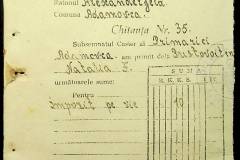 Raionul Alexăndreni
Comuna Adamovca
Chitanța Nr. 35.
Subsemnatul Casier al Primăriei
Adamovca am primit dela Pustovoiten
Natalia F.
următoarele sume:
SUMA
Pentru
Impozit pe vie
10